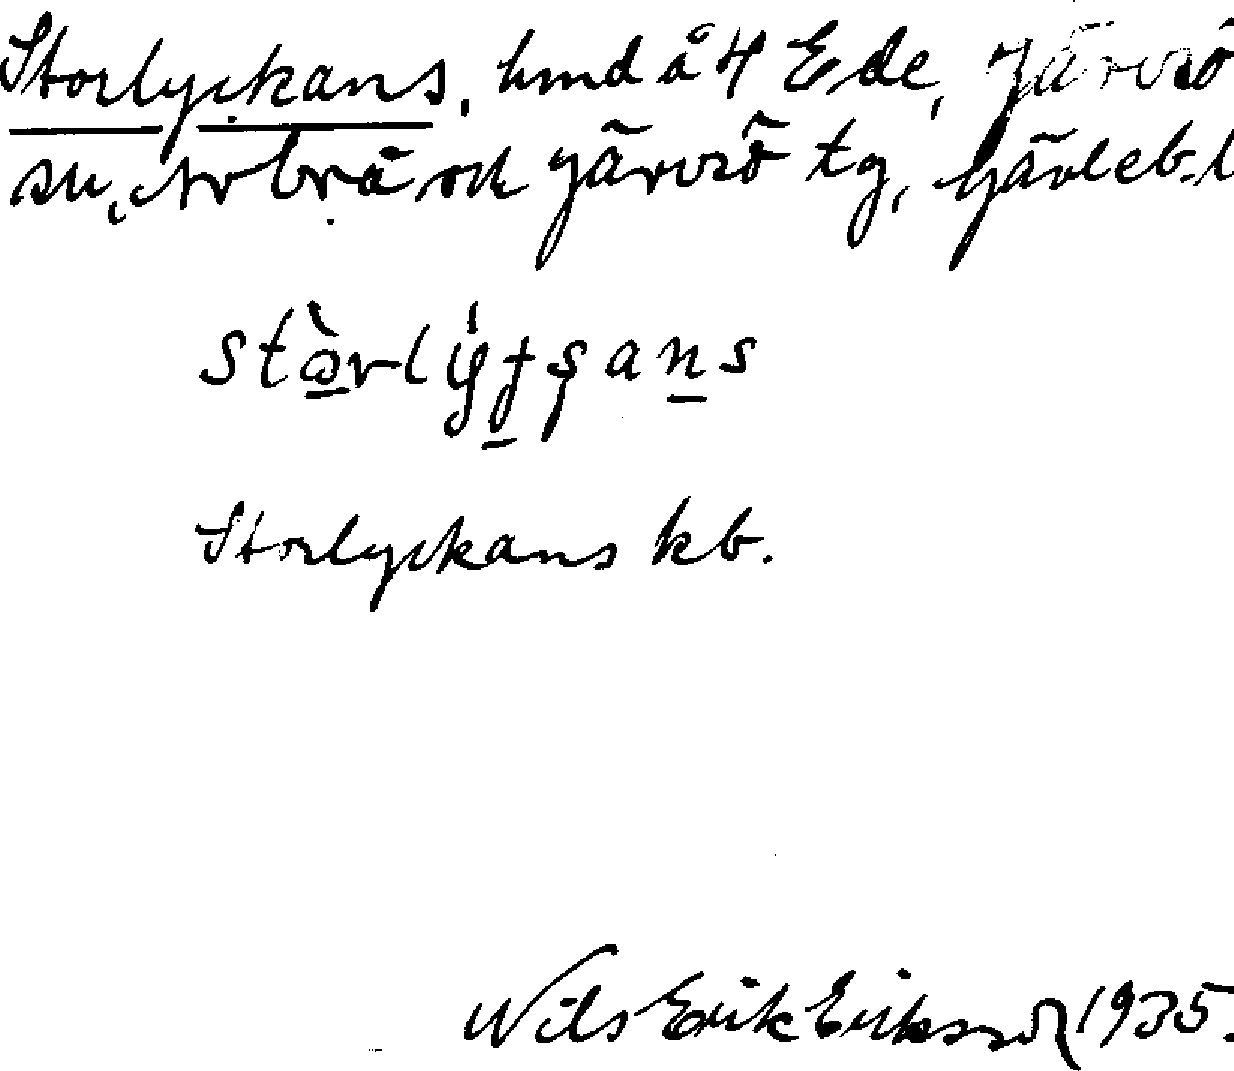 Storlyckans, hmd å 4 Ede, Järvsö
sn, Arbrå och Järvsö tg, Gävleb. l
Storlyckans kb.
Nils Erik Eriksson 1935.